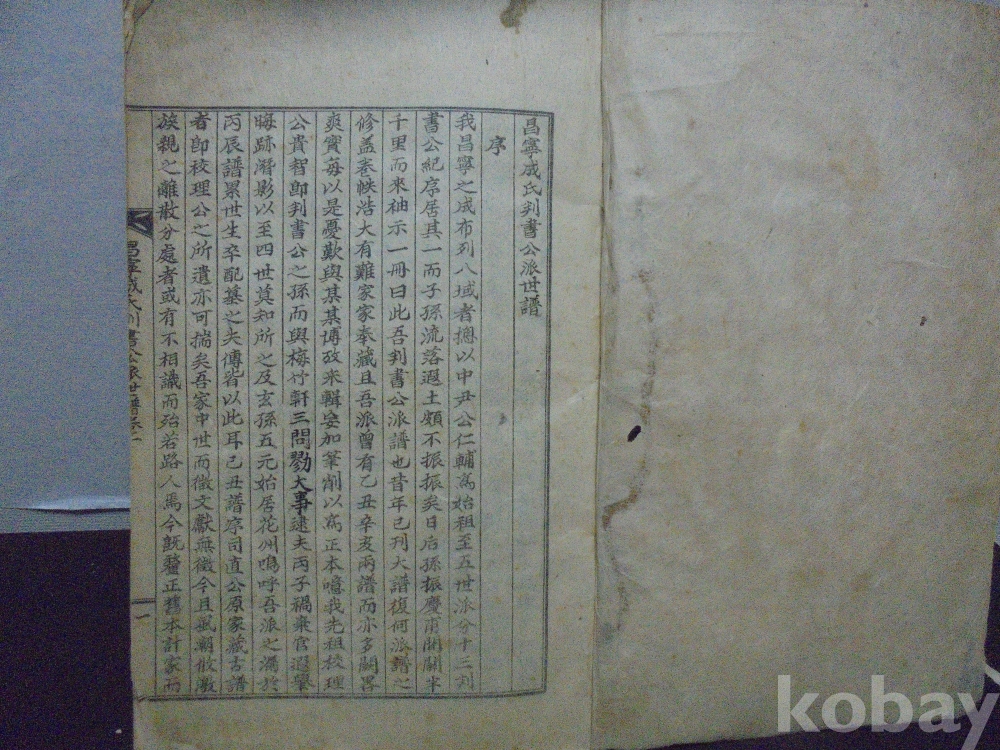 昌寧成氏判書公派世譜
序
我昌寧之成布列八域者摠以中尹公仁輔爲始祖至五世派分十三判
書公紀序居其一而子孫流落遐土頗不振振矣日后孫振慶甫間關半
千里而來袖示一冊曰此吾判書公派譜也昔年已刊大譜復何派譜之
修盖卷帙浩大有難家家奉藏且吾派曾有乙丑辛亥兩譜而亦多闕畧
爽實每以是憂歎與某某博攷來輯妥加筆削以爲正本噫我先祖校理
公貴智卽判書公之孫而與梅竹軒三問勠大事逮夫丙子禍棄官遐擧
晦跡潛影以至四世莫知所之及玄孫五元始居花州嗚呼吾派之濁於
丙辰譜累世生卒配墓之失傳皆以此耳己丑譜序司直公原家藏古譜
者卽校理公之所遺亦可揣矣吾家中世而徵文獻無徵今且風潮散激
族親之離散分處者或有不相識而殆若路人焉今旣釐正舊本計家而
昌寧成氏判書公派世譜 一
kobay